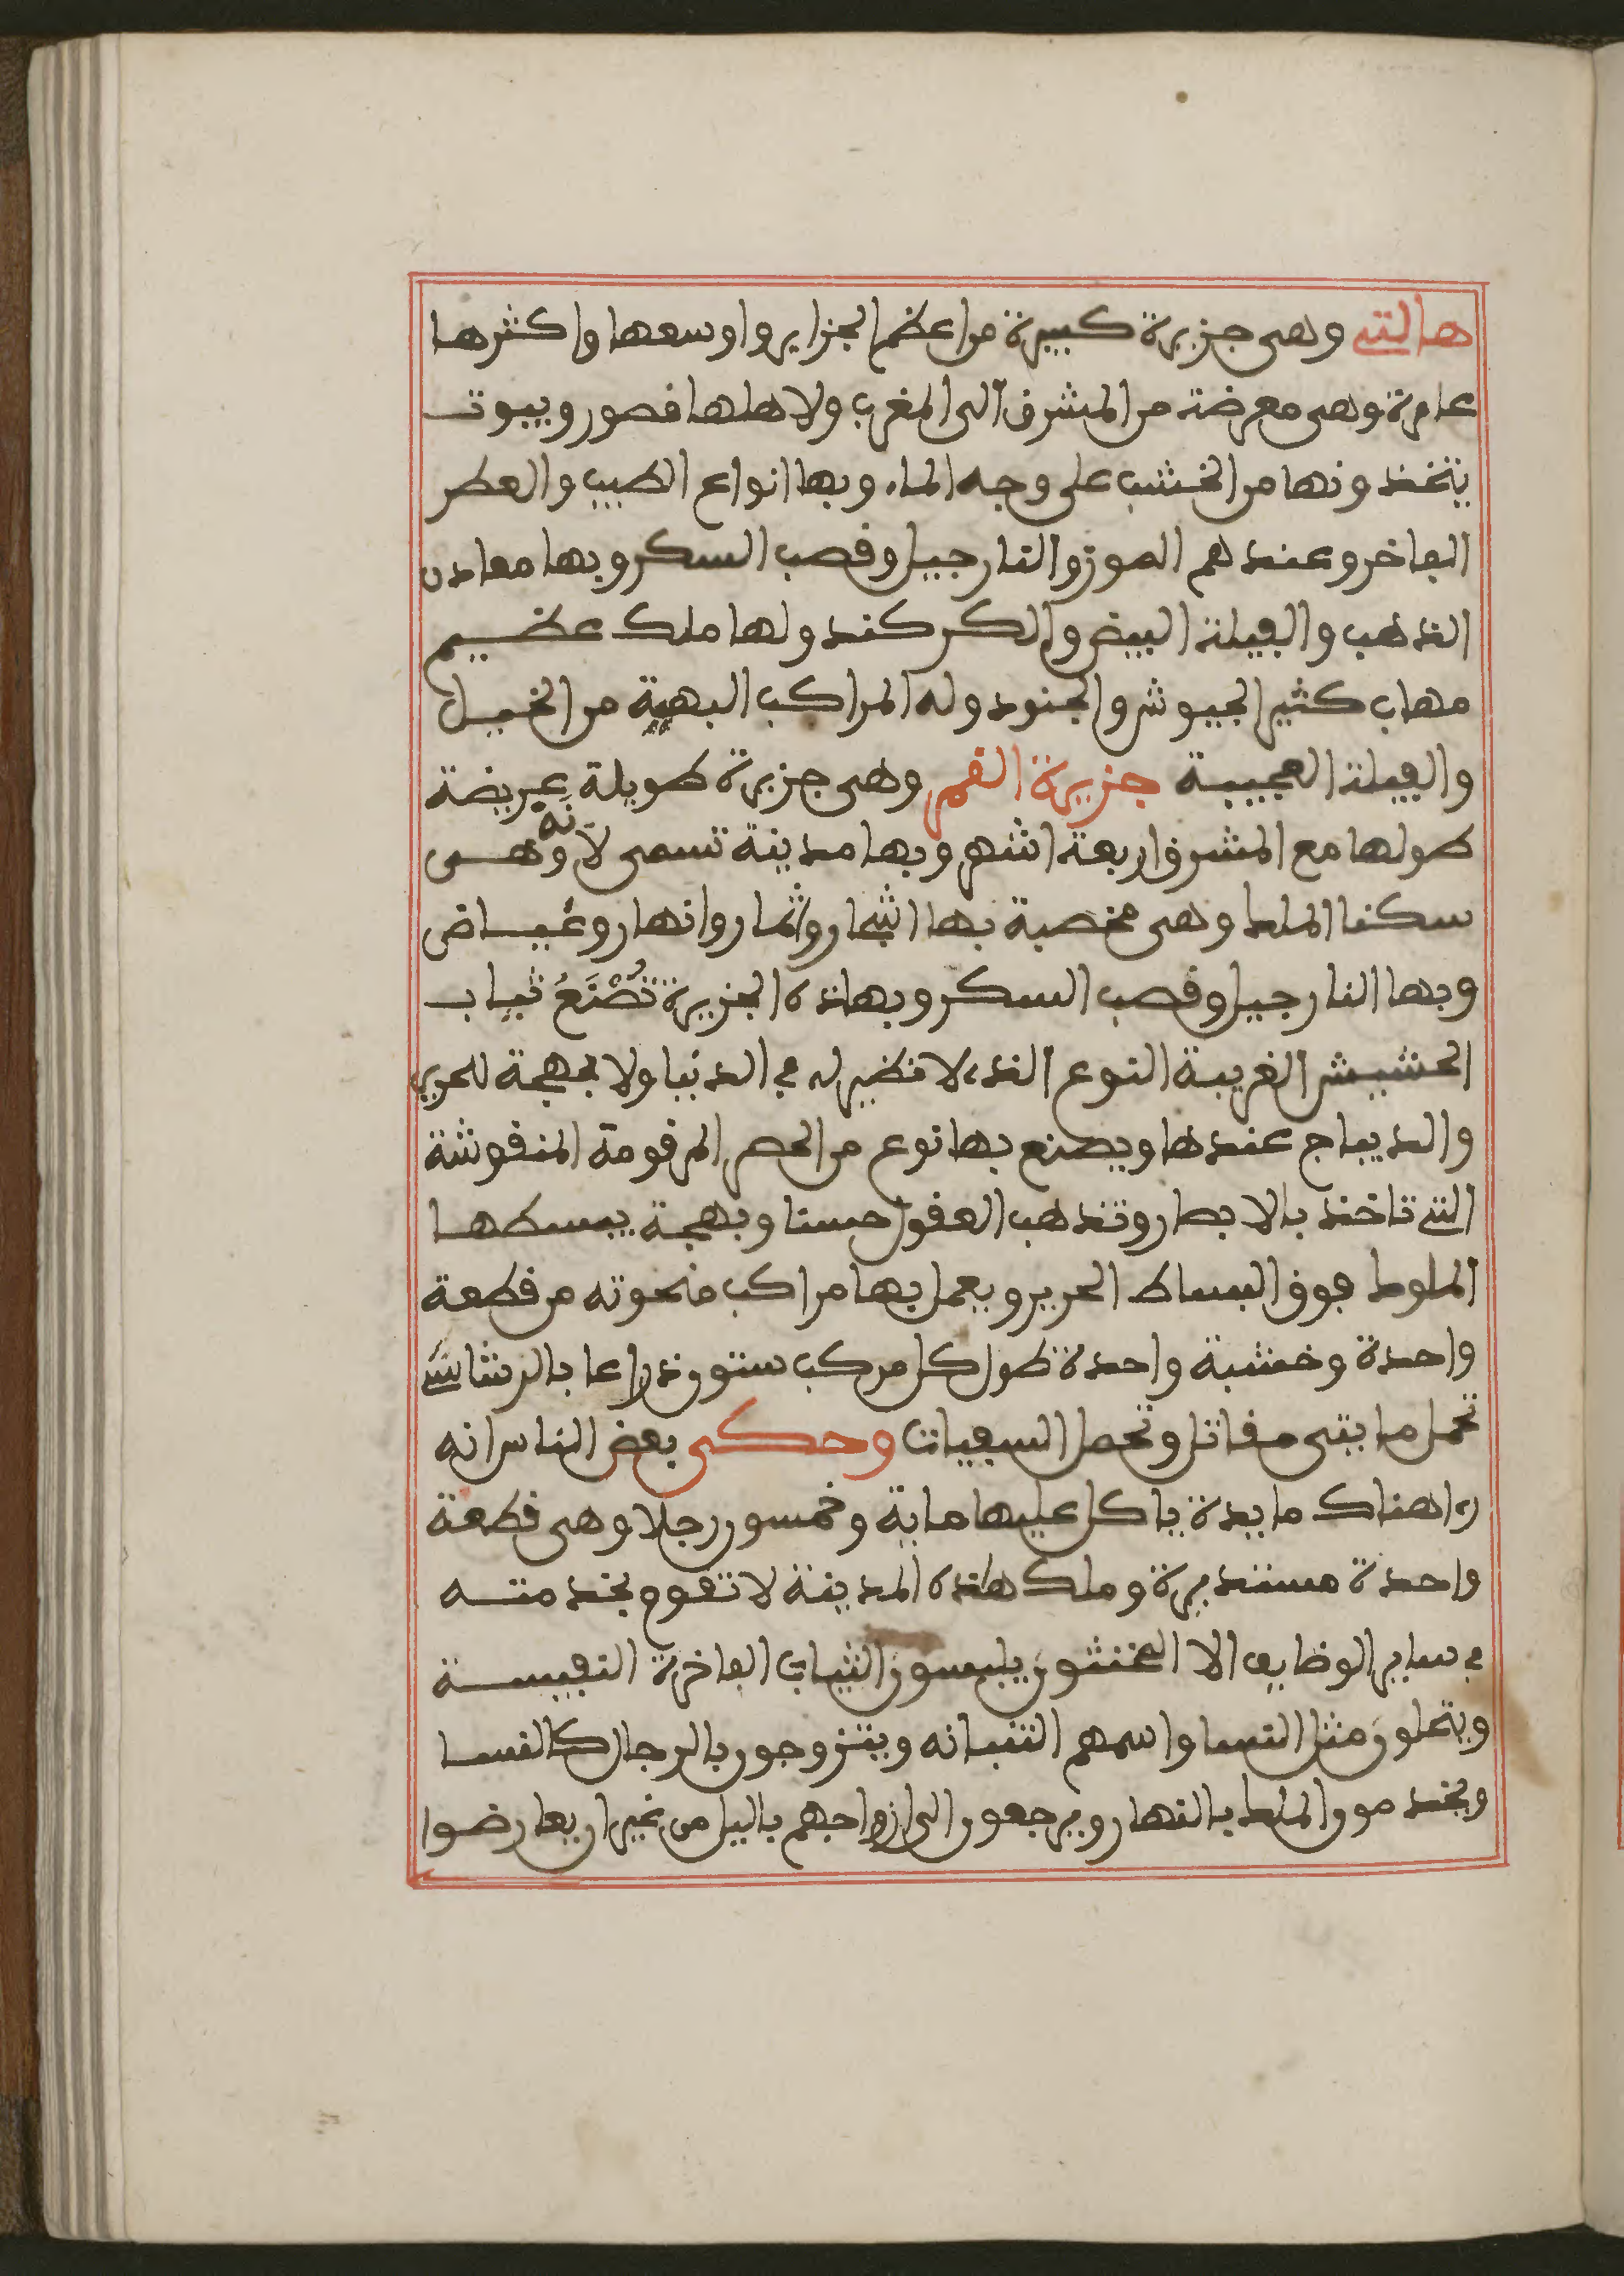 هالتى وهى جزيرة كبيرة من اعظم الجزاير واوسعها واكثرها
عامرة وهى معرضة من المشرق الى المغرب ولاهلها قصور وبيوت
يتخذونها من الخشب على وجه الماء وبها انواع الطيب والعطر
الفاخر وعندهم الموز والنارجيل وقصب السكر وبها معادن
الذهب والفيلة البيض والكركند ولها ملك عظيم
مهاب كثير الجيوش والجنود وله المراكب البهية من الخيل
والفيلة العجيبة جزيرة القمر وهى جزيرة طويلة عريضة
طولها مع المشرق اربعة اشهر وبها مدينة تسمى لانة وهى
سكنا الملك وهى مخصبة بها اشجار واثمار وانهار وغياض
وبها النارجيل وقصب السكر وبهاذه الجزيرة تُصْنَعُ ثياب
الحشيش الغريبة النوع الذى لا نظير له في الدنيا ولا بهجة للحرير
والديباج عندها ويصنع بها نوع من الحصر المرقومة المنقوشة
التى تاخذ بالابصار وتذهب العقول حسنا وبهجة يبسطها
الملوك فوق البساط الحرير ويعمل بها مراكب منحوته من قطعة
واحدة وخشبة واحدة طول كل مركب ستون ذراعا بالرشاشى
تحمل مايتى مقاتل وتحمل السفيات وحكى بعض الناس انه
راى هناك مايدة ياكل عليها ماية وخمسون رجلا وهى قطعة
واحدة مستديرة وملك هاذه المدينة لا تقوم بخدمته
في ساير الوظايف الا المخنثون يلبسون الثياب الفاخرة النفيسة
ويتحلون مثل النسا واسمهم التنبانه ويتزوجون بالرجال كالنسا
ويخدمون الملك بالنهار ويرجعون الى ازواجهم باليل من غير ان يعارضوا